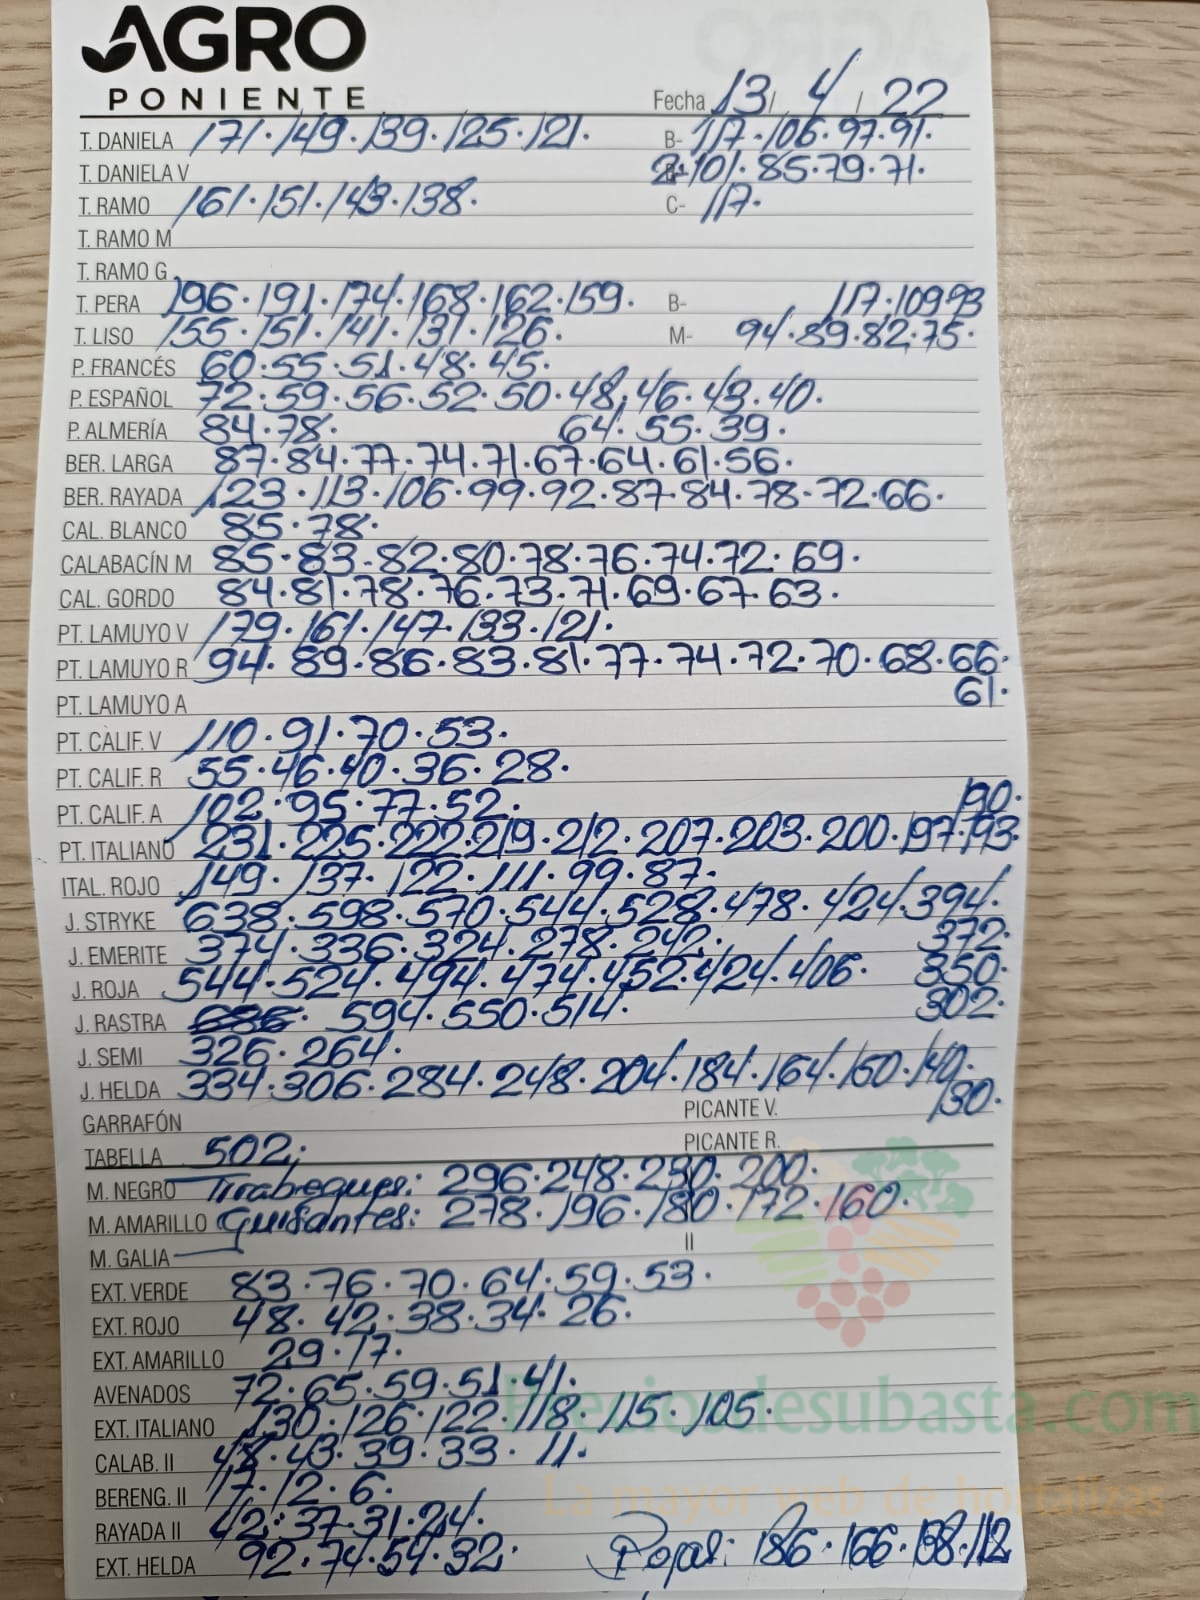 AGRO
PONIENTE
Fecha 13/ 4 / 22
T. DANIELA 171·149·139·125·121· B- 117·106·97·91·
T. DANIELA V 2-101·85·79·71·
T. RAMO 161·151·143·138· C- 117·
T. RAMO M
T. RAMO G
T. PERA 196·191·174·168·162·159· B- 117·109·93
T. LISO 155·151·141·131·126· M- 94·89·82·75·
P. FRANCÉS 60·55·51·48·45·
P. ESPAÑOL 72·59·56·52·50·48·46·43·40·
P. ALMERÍA 84·78· 64·55·39·
BER. LARGA 87·84·77·74·71·67·64·61·56·
BER. RAYADA 123·113·106·99·92·87·84·78·72·66·
CAL. BLANCO 85·78·
CALABACÍN M 85·83·82·80·78·76·74·72·69·
CAL. GORDO 84·81·78·76·73·71·69·67·63·
PT. LAMUYO V 179·161·147·133·121·
PT. LAMUYO R 94·89·86·83·81·77·74·72·70·68·66·
61·
PT. LAMUYO A
PT. CALIF. V 110·91·70·53·
PT. CALIF. R 55·46·40·36·28·
PT. CALIF. A 102·95·77·52· 190·
PT. ITALIANO 231·225·222·219·212·207·203·200·197·193·
ITAL. ROJO 149·137·122·111·99·87·
J. STRYKE 638·598·570·544·528·478·424·394·
J. EMERITE 374·336·324·278·242· 372·
J. ROJA 544·524·494·474·452·424·406· 350·
J. RASTRA 594·550·514· 302·
J. SEMI 326·264·
J. HELDA 334·306·284·248·204·184·164·160·140·
GARRAFÓN PICANTE V. 130·
TABELLA 502· PICANTE R.
M. NEGRO Tirabeques: 296·248·230·200·
M. AMARILLO Guisantes: 278·196·180·172·160·
M. GALIA II
EXT. VERDE 83·76·70·64·59·53·
EXT. ROJO 48·42·38·34·26·
EXT. AMARILLO 29·17·
AVENADOS 72·65·59·51·41·
Preciosdesubasta.com
EXT. ITALIANO 130·126·122·118·115·105·
CALAB. II 48·43·39·33·11·
La mayor web de hortalizas
BERENG. II 17·12·6·
RAYADA II 42·37·31·24·
EXT. HELDA 92·74·54·32· Rojas: 186·166·138·112